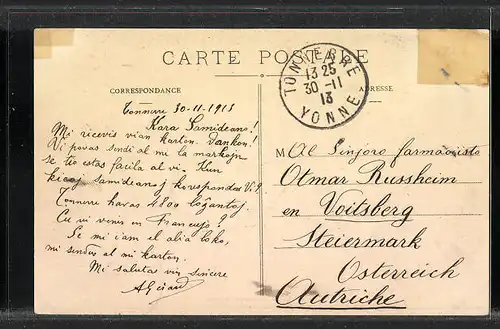 CARTE POSTALE
CORRESPONDANCE
ADRESSE
TONNERRE
13 25
30 -11
13
YONNE
Tonnerre 30-11-1913
Kara Samideano!
Mi ricevis vian karton. Dankon!
Vi povas sendi al mi la markojn
se tio estas facila al vi. Kun
kiaj samideanoj korespondas Vi?
Tonnerre havas 4800 loĝantoj
Ĉu vi venis en Francujo?
Se mi iam el alia loko,
mi sendos al mi karton.
Mi salutas vin sincere
M Al Sinjoro farmaciisto
Otmar Russheim
en Voitsberg
Steiermark
Osterreich
Autriche